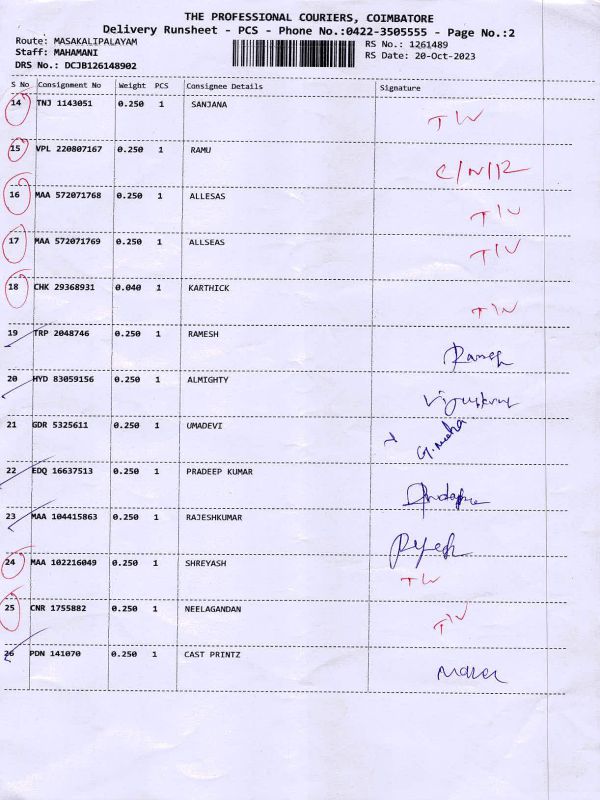 THE PROFESSIONAL COURIERS, COIMBATORE
Delivery Runsheet - PCS - Phone No.:0422-3505555 - Page No.:2
Route: MASAKALIPALAYAM
Staff: MAHAMANI
DRS No.: DCJB126148902
RS No.: 1261489
RS Date: 20-Oct-2023
S No Consignment No Weight PCS Consignee Details Signature
14 TNJ 1143051 0.250 1 SANJANA
TW
15 VPL 220807167 0.250 1 RAMU
C/N/R
16 MAA 572071768 0.250 1 ALLESAS
TIV
17 MAA 572071769 0.250 1 ALLSEAS
TIV
18 CHK 29368931 0.040 1 KARTHICK
19 TRP 2048746 0.250 1 RAMESH
Ramesh
20 HYD 83059156 0.250 1 ALMIGHTY
21 GDR 5325611 0.250 1 UMADEVI
22 EDQ 16637513 0.250 1 PRADEEP KUMAR
23 MAA 104415863 0.250 1 RAJESHKUMAR
24 MAA 102216049 0.250 1 SHREYASH
TW
25 CNR 1755882 0.250 1 NEELAGANDAN
TIV
26 PDN 141070 0.250 1 CAST PRINTZ